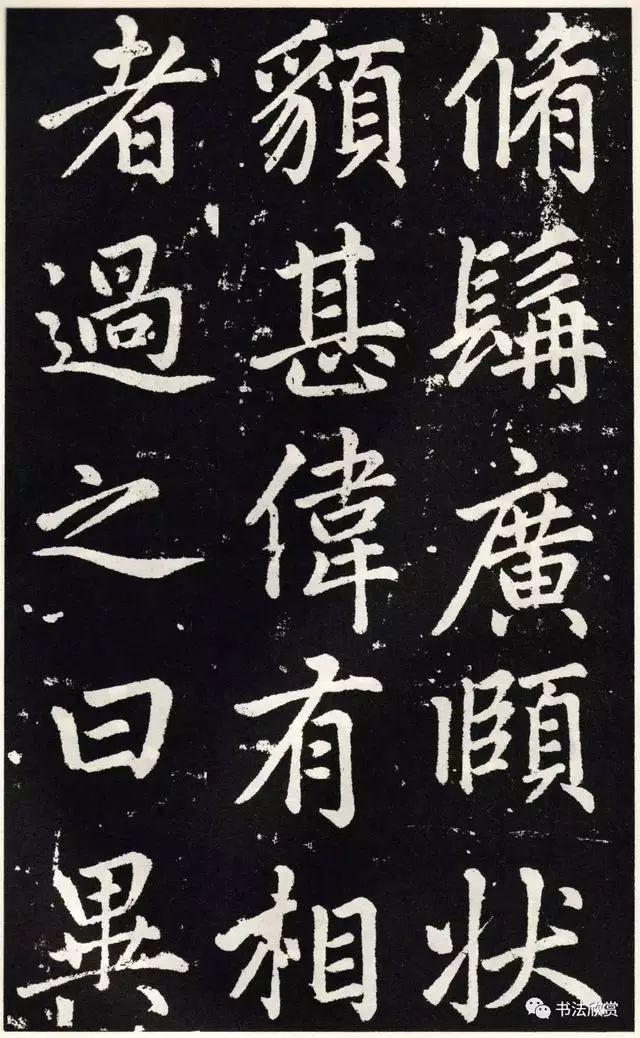 脩髯廣頤状
貌甚偉有相
者過之曰異
书法欣赏